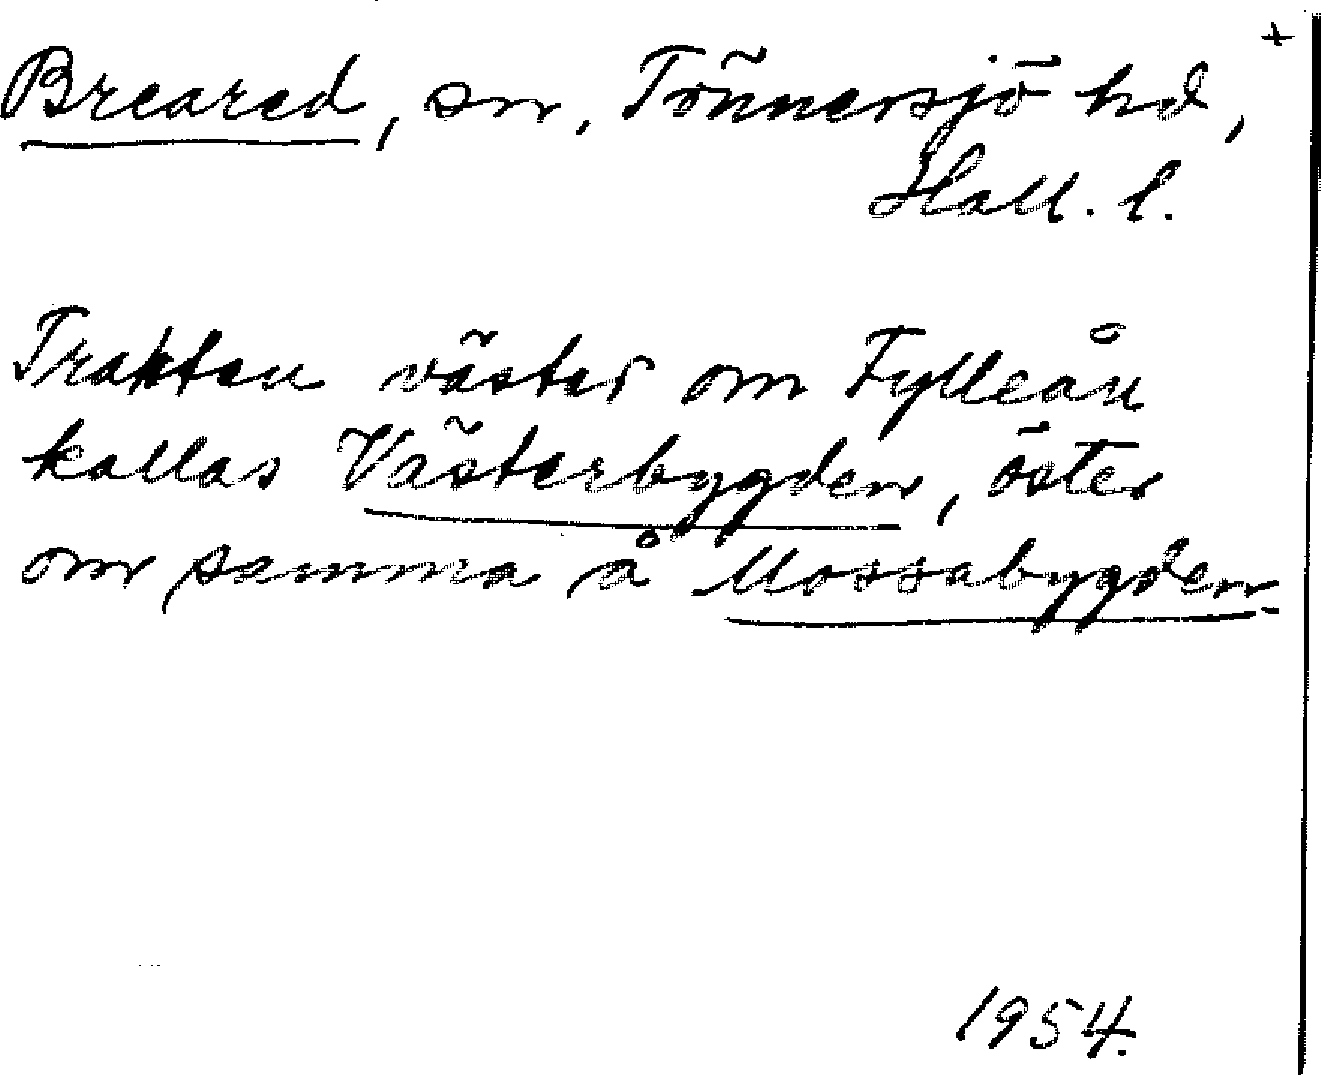 +
Breared, sn, Tönnersjö hd,
Hall. l.
Trakten väster om Fylleån
kallas Västerbygden, öster
om samma å Mossabygden.
1954.